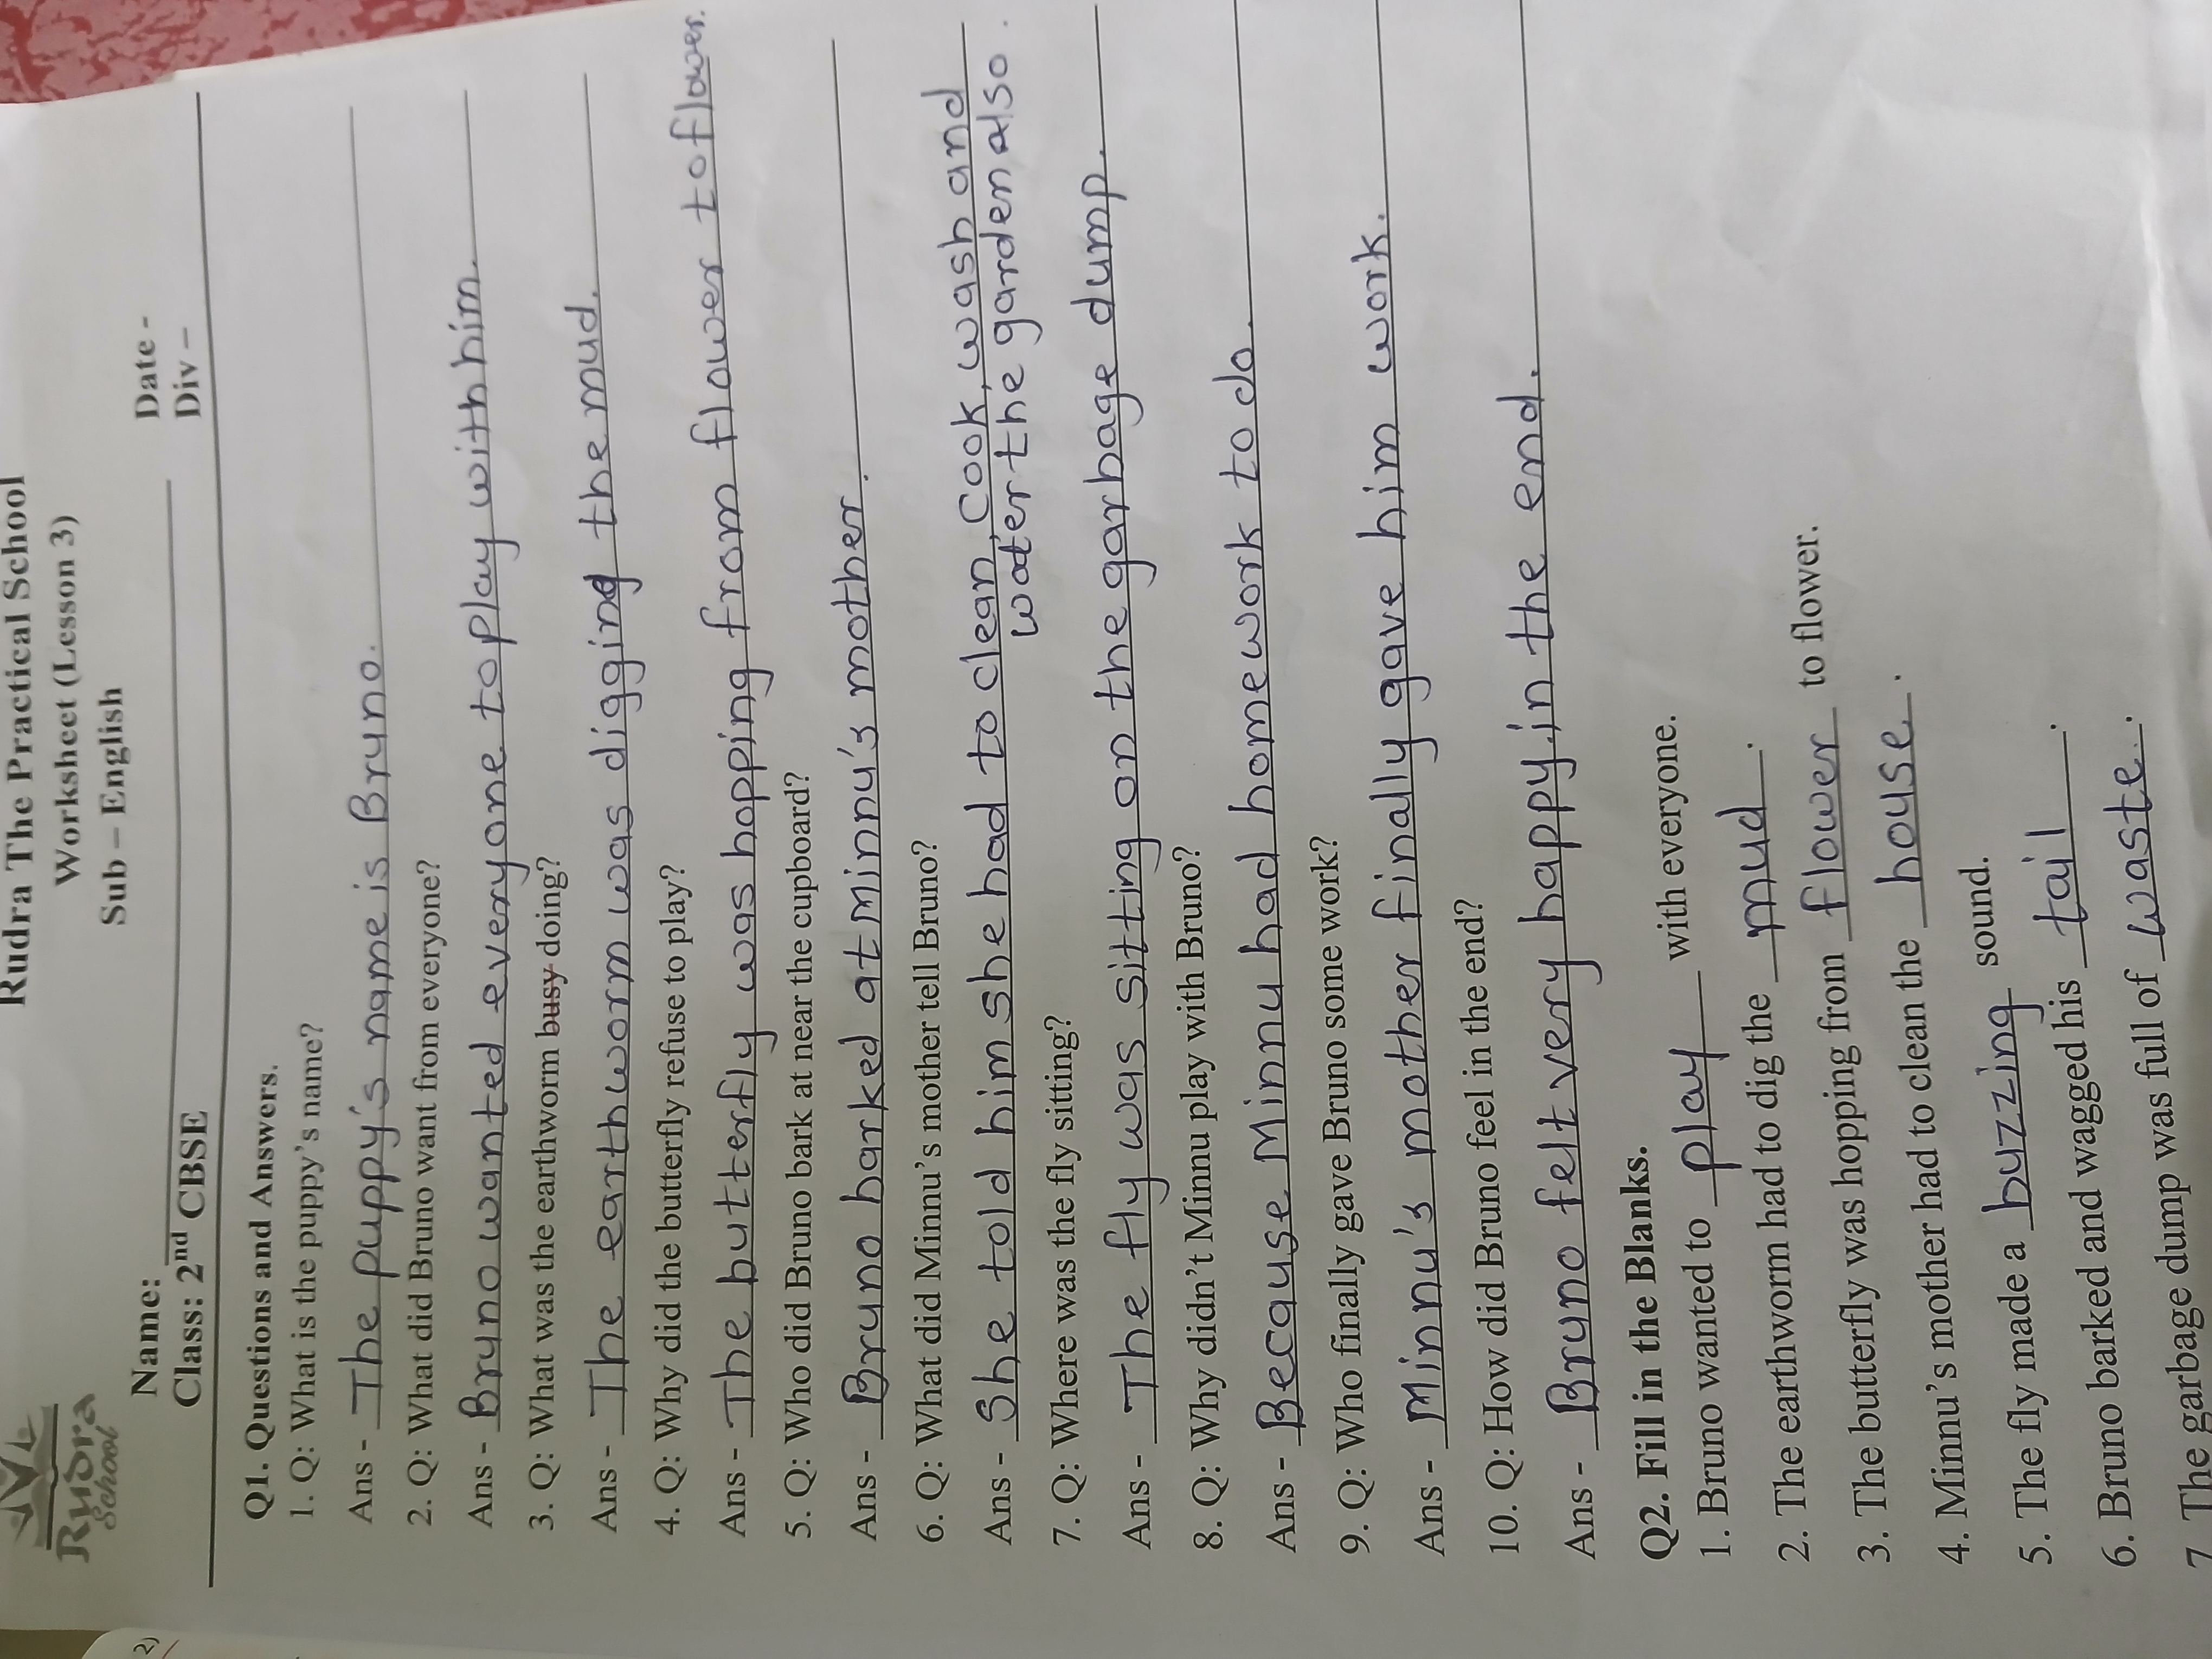 Rudra
School
Rudra The Practical School
Worksheet (Lesson 3)
Sub – English
Name: Date -
Class: 2nd CBSE Div –
Q1. Questions and Answers.
1. Q: What is the puppy's name?
Ans - The puppy's name is Bruno.
2. Q: What did Bruno want from everyone?
Ans - Bruno wanted everyone to play with him.
3. Q: What was the earthworm busy doing?
Ans - The earthworm was digging the mud.
4. Q: Why did the butterfly refuse to play?
Ans - The butterfly was hopping from flower to flower.
5. Q: Who did Bruno bark at near the cupboard?
Ans - Bruno barked at Minnu's mother.
6. Q: What did Minnu's mother tell Bruno?
Ans - She told him she had to clean, cook, wash and
water the garden also.
7. Q: Where was the fly sitting?
Ans - The fly was sitting on the garbage dump.
8. Q: Why didn't Minnu play with Bruno?
Ans - Because Minnu had homework to do.
9. Q: Who finally gave Bruno some work?
Ans - Minnu's mother finally gave him work.
10. Q: How did Bruno feel in the end?
Ans - Bruno felt very happy in the end.
Q2. Fill in the Blanks.
1. Bruno wanted to play with everyone.
2. The earthworm had to dig the mud.
3. The butterfly was hopping from flower to flower.
4. Minnu's mother had to clean the house.
5. The fly made a buzzing sound.
6. Bruno barked and wagged his tail.
7. The garbage dump was full of waste.
2)